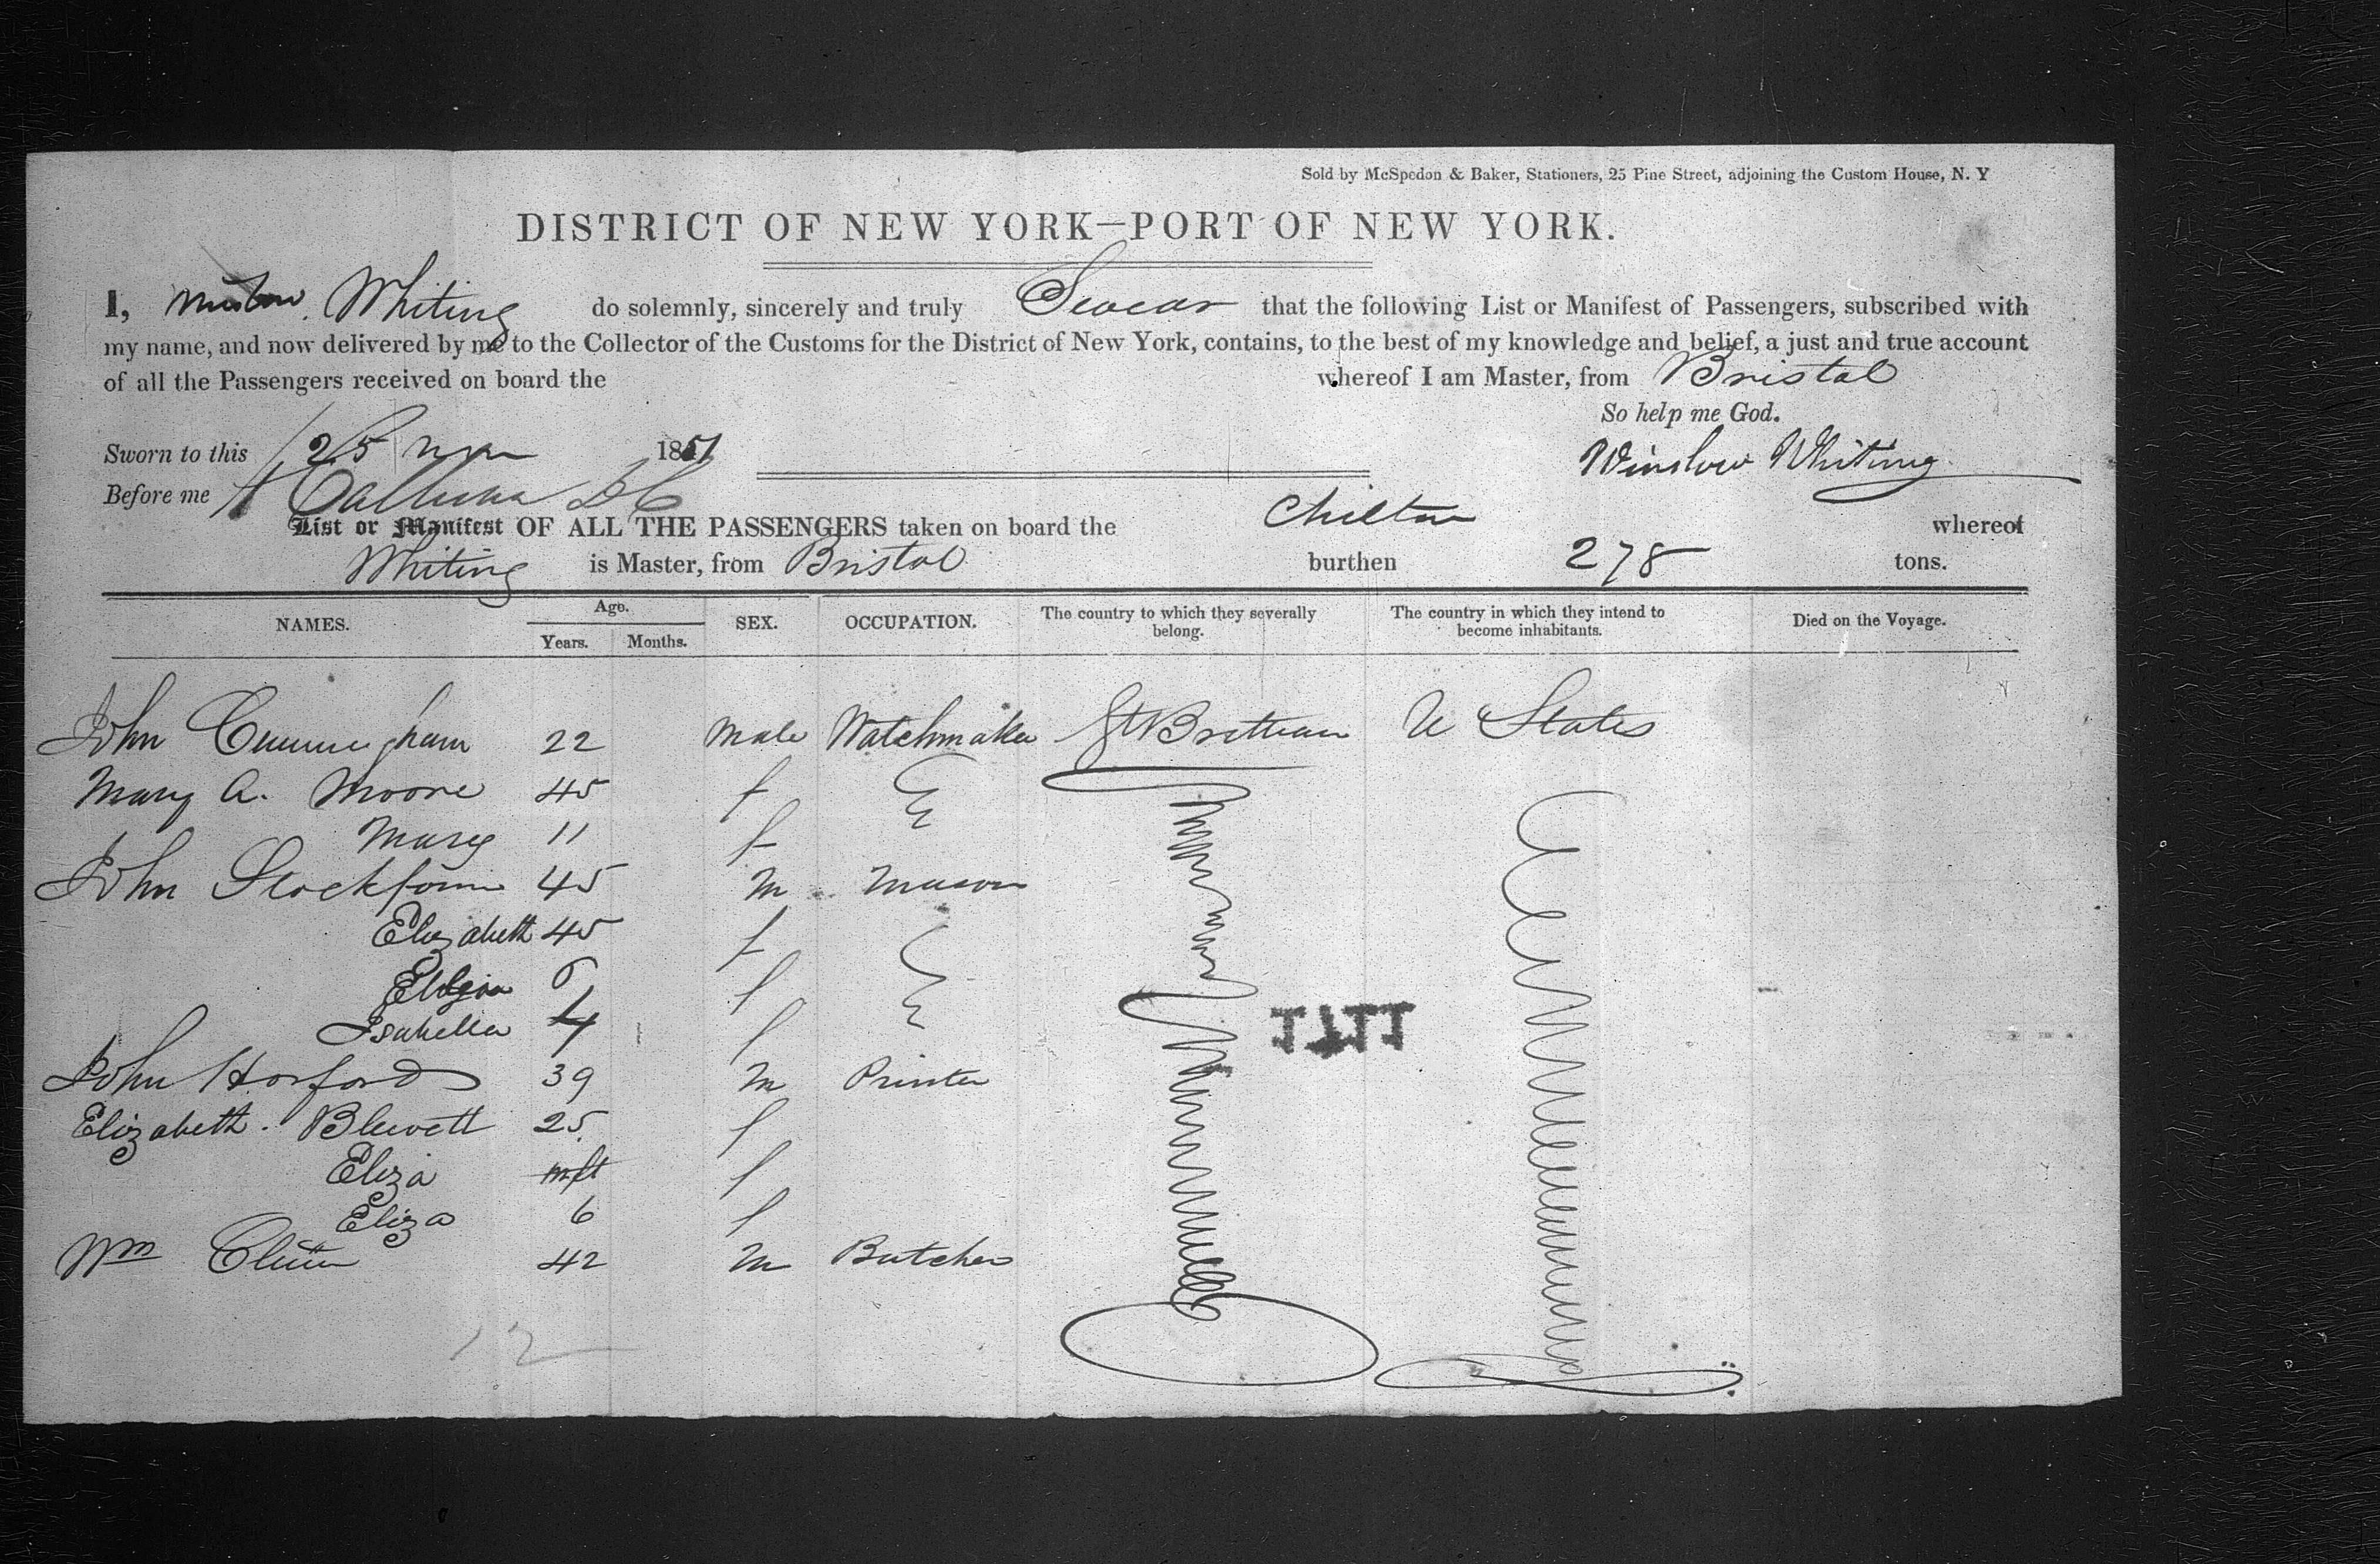 Sold by McSpedon & Baker, Stationers, 25 Pine Street, adjoining the Custom House, N. Y
DISTRICT OF NEW YORK—PORT OF NEW YORK.
I, Winslow Whiting do solemnly, sincerely and truly Swear that the following List or Manifest of Passengers, subscribed with
my name, and now delivered by me to the Collector of the Customs for the District of New York, contains, to the best of my knowledge and belief, a just and true account
of all the Passengers received on board the whereof I am Master, from Bristol
So help me God.
Sworn to this 25 1851
Winslow Whiting
Before me
List or Manifest OF ALL THE PASSENGERS taken on board the Chilton whereof
Whiting is Master, from Bristol burthen 278 tons.
NAMES. Age. Years. Months. SEX. OCCUPATION. The country to which they severally belong. The country in which they intend to become inhabitants. Died on the Voyage.
John Cunningham 22 Male Watchmaker Gt Brittian U States
Mary A. Moore 45 f
Mary 11 f
John 45 M Mason
Elizabeth 45 f
6 f
Isabella 4 f
1711
John Horford 39 M Printer
Elizabeth. Blewett 25 f
Eliza inft f
Eliza 6 f
Wm 42 M Butcher
12